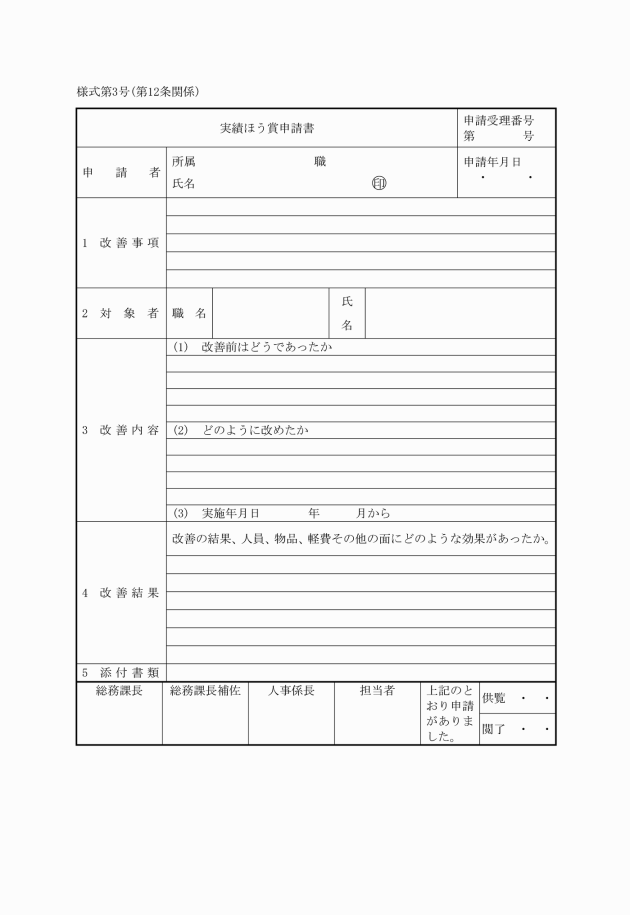 様式第3号(第12条関係)
実績ほう賞申請書
申請受理番号
第　　　　号
申　請　者
所属　　　　　　　　　　職
氏名　　　　　　　　　　　　　　　㊞
申請年月日
・　　　・
1　改善事項
2　対　象　者
職　名
氏
名
3　改善内容
(1)　改善前はどうであったか
(2)　どのように改めたか
(3)　実施年月日　　　　年　　　月から
4　改善結果
改善の結果、人員、物品、軽費その他の面にどのような効果があったか。
5　添付書類
総務課長
総務課長補佐
人事係長
担当者
上記のと
おり申請
がありま
した。
供覧　・　・
閲了　・　・